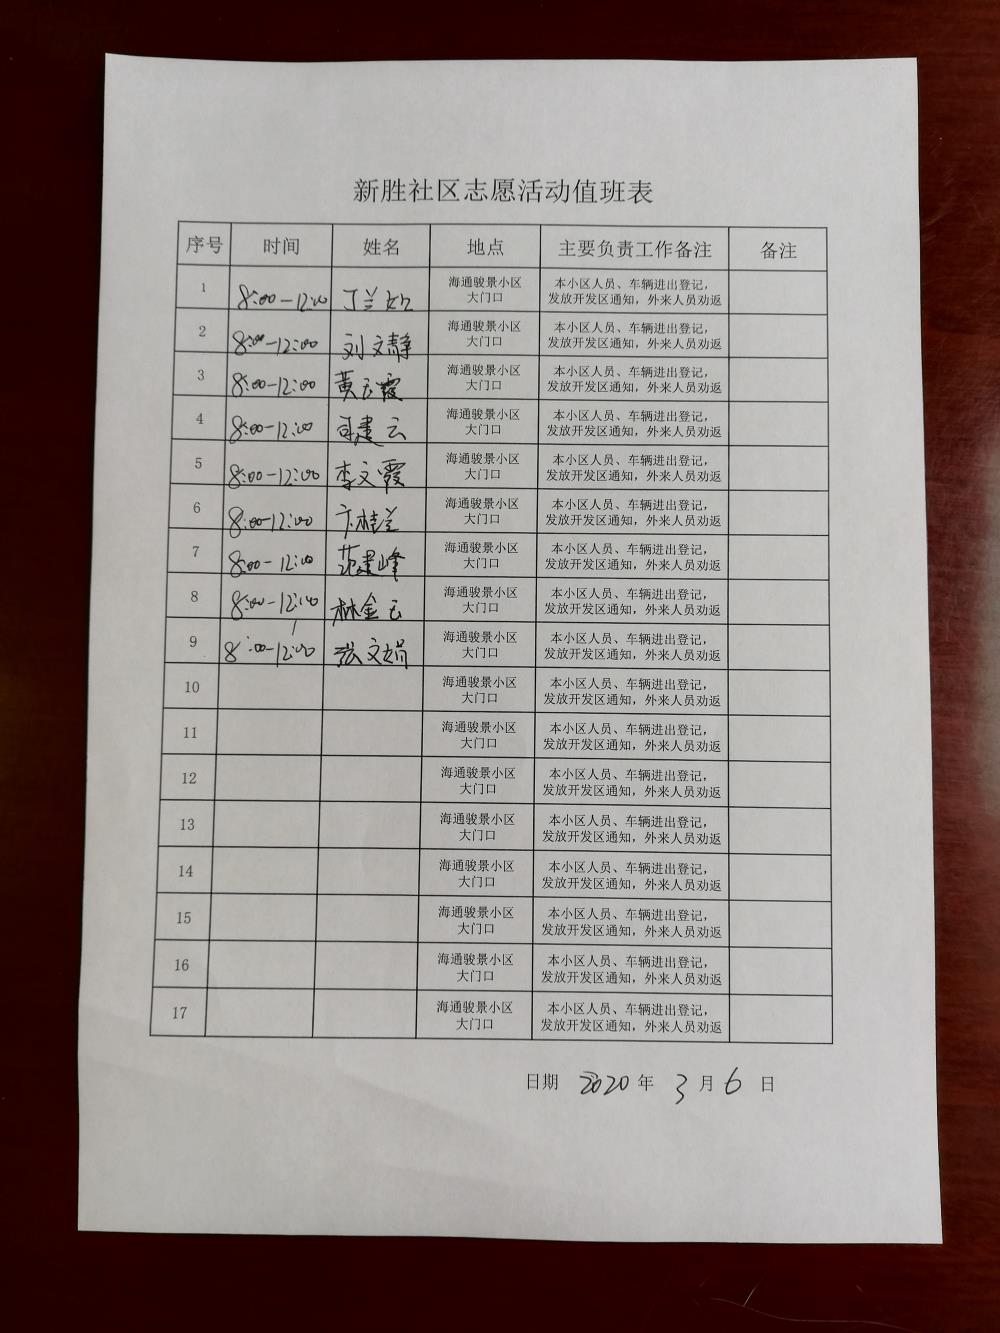 新胜社区志愿活动值班表
序号 时间 姓名 地点 主要负责工作备注 备注
1 8:00-12:00 丁兰 海通骏景小区大门口 本小区人员、车辆进出登记，发放开发区通知，外来人员劝返
2 8:00-12:00 刘文静 海通骏景小区大门口 本小区人员、车辆进出登记，发放开发区通知，外来人员劝返
3 8:00-12:00 黄玉霞 海通骏景小区大门口 本小区人员、车辆进出登记，发放开发区通知，外来人员劝返
4 8:00-12:00 建云 海通骏景小区大门口 本小区人员、车辆进出登记，发放开发区通知，外来人员劝返
5 8:00-12:00 李文霞 海通骏景小区大门口 本小区人员、车辆进出登记，发放开发区通知，外来人员劝返
6 8:00-12:00 卞桂兰 海通骏景小区大门口 本小区人员、车辆进出登记，发放开发区通知，外来人员劝返
7 8:00-12:00 范建峰 海通骏景小区大门口 本小区人员、车辆进出登记，发放开发区通知，外来人员劝返
8 8:00-12:00 林金玉 海通骏景小区大门口 本小区人员、车辆进出登记，发放开发区通知，外来人员劝返
9 8:00-12:00 张文娟 海通骏景小区大门口 本小区人员、车辆进出登记，发放开发区通知，外来人员劝返
10 海通骏景小区大门口 本小区人员、车辆进出登记，发放开发区通知，外来人员劝返
11 海通骏景小区大门口 本小区人员、车辆进出登记，发放开发区通知，外来人员劝返
12 海通骏景小区大门口 本小区人员、车辆进出登记，发放开发区通知，外来人员劝返
13 海通骏景小区大门口 本小区人员、车辆进出登记，发放开发区通知，外来人员劝返
14 海通骏景小区大门口 本小区人员、车辆进出登记，发放开发区通知，外来人员劝返
15 海通骏景小区大门口 本小区人员、车辆进出登记，发放开发区通知，外来人员劝返
16 海通骏景小区大门口 本小区人员、车辆进出登记，发放开发区通知，外来人员劝返
17 海通骏景小区大门口 本小区人员、车辆进出登记，发放开发区通知，外来人员劝返
日期 2020 年 3 月 6 日